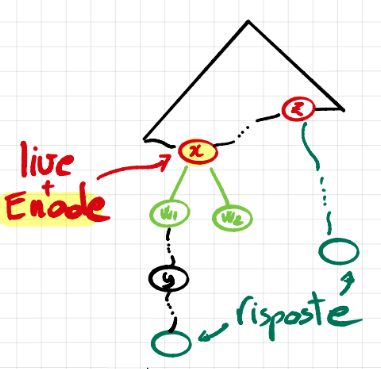 z
x
live
+
Enode
w1
w2
y
risposte